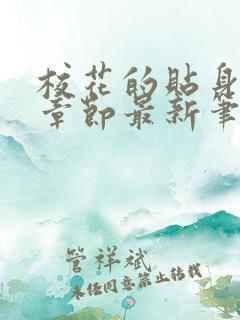 校花的贴身
章节最新筆
管祥斌
未经同意禁止转载